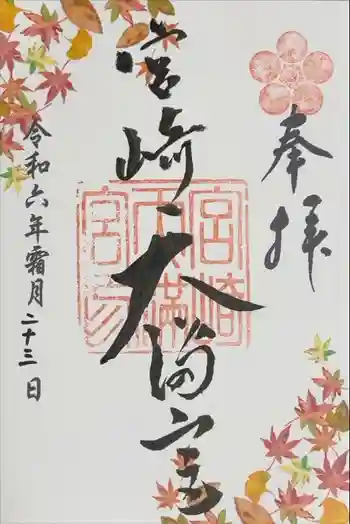 奉拝
宮崎天満宮
宮崎
天満
宮
令和六年霜月二十三日